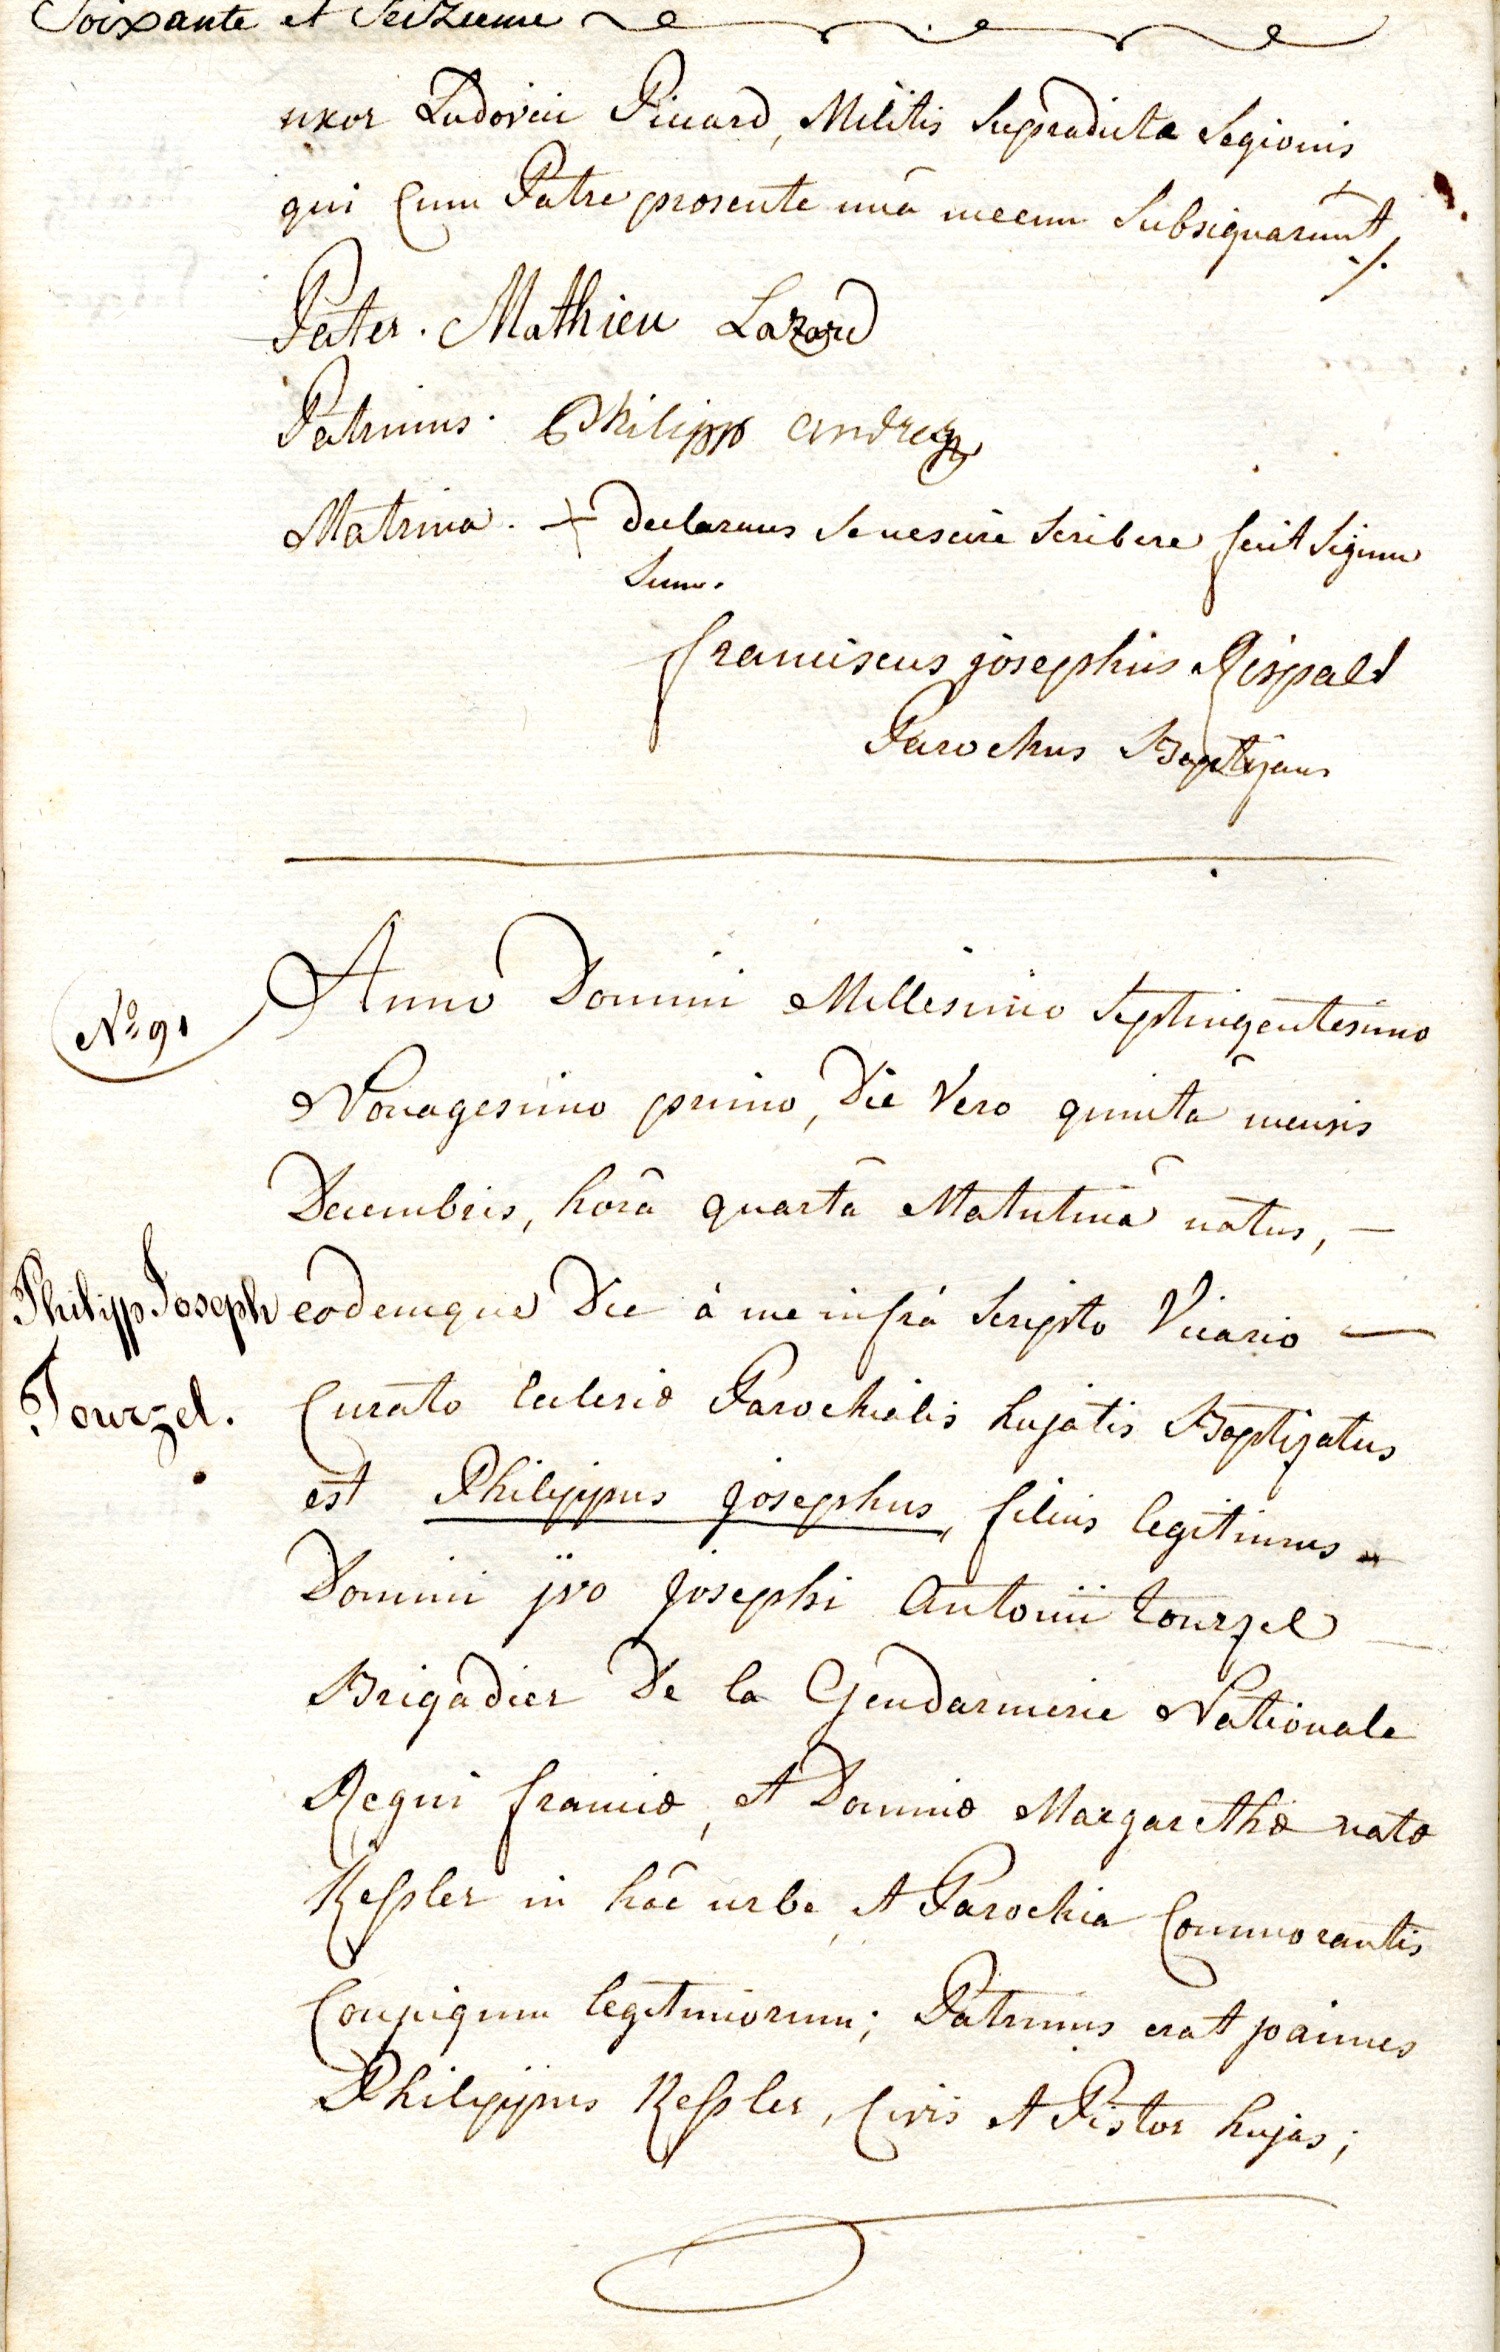 Soixante et Seizieme
uxor Ludovici Picard, Militis Supradicta Legionis
qui Cum Patre presente unâ mecum Subsignarunt ./.
Pater. Mathieu Lazard
Patrinus. Philipp andres
Matrina. + declarans Se nescire Scribere fecit Signum
Suum.
franciscus josephus Rispald
Parochus Baptizans
Anno Domini Millesimo Septingentesimo
Nº 91
Nonagesimo primo, Die Vero quintâ mensis
Decembris, horâ quartâ Matutinâ natus, —
Philipp Joseph
eodemque Die à me infrà Scripto Vicario —
Tourzel.
Curato Eclesiæ Parochialis hujatis Baptizatus
est Philippus josephus, filius legitimus
Domini jvo josephi Antonii tourzel
Brigadier De la Gendarmerie Nationale
Regni franciæ, et Dominæ Margarethæ natæ
Kessler in hâc urbe, et Parochia Commorantis
Conjugum legitimorum; Patrinus erat joannes
Philippus Kessler, Civis et Pistor hujas;